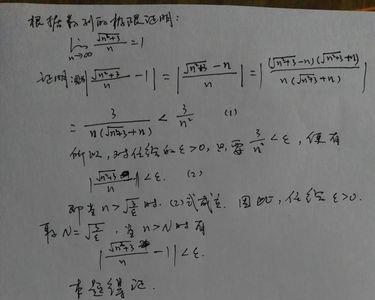 根据数列的极限证明:
lim n→∞ √(n²+3)/n = 1
证明: |√(n²+3)/n - 1| = |(√(n²+3) - n)/n| = |(√(n²+3) - n)(√(n²+3) + n)/(n(√(n²+3) + n))|
= 3/(n(√(n²+3) + n)) < 3/n² (1)
所以,对任给的ε>0,只要 3/n² < ε,便有
|√(n²+3)/n | < ε. (2)
即当 n > √(3/ε) 时,(2)式成立. 因此,任给 ε>0.
取 N = √(3/ε),当 n > N 时有
|√(n²+3)/n - 1| < ε.
本题得证.